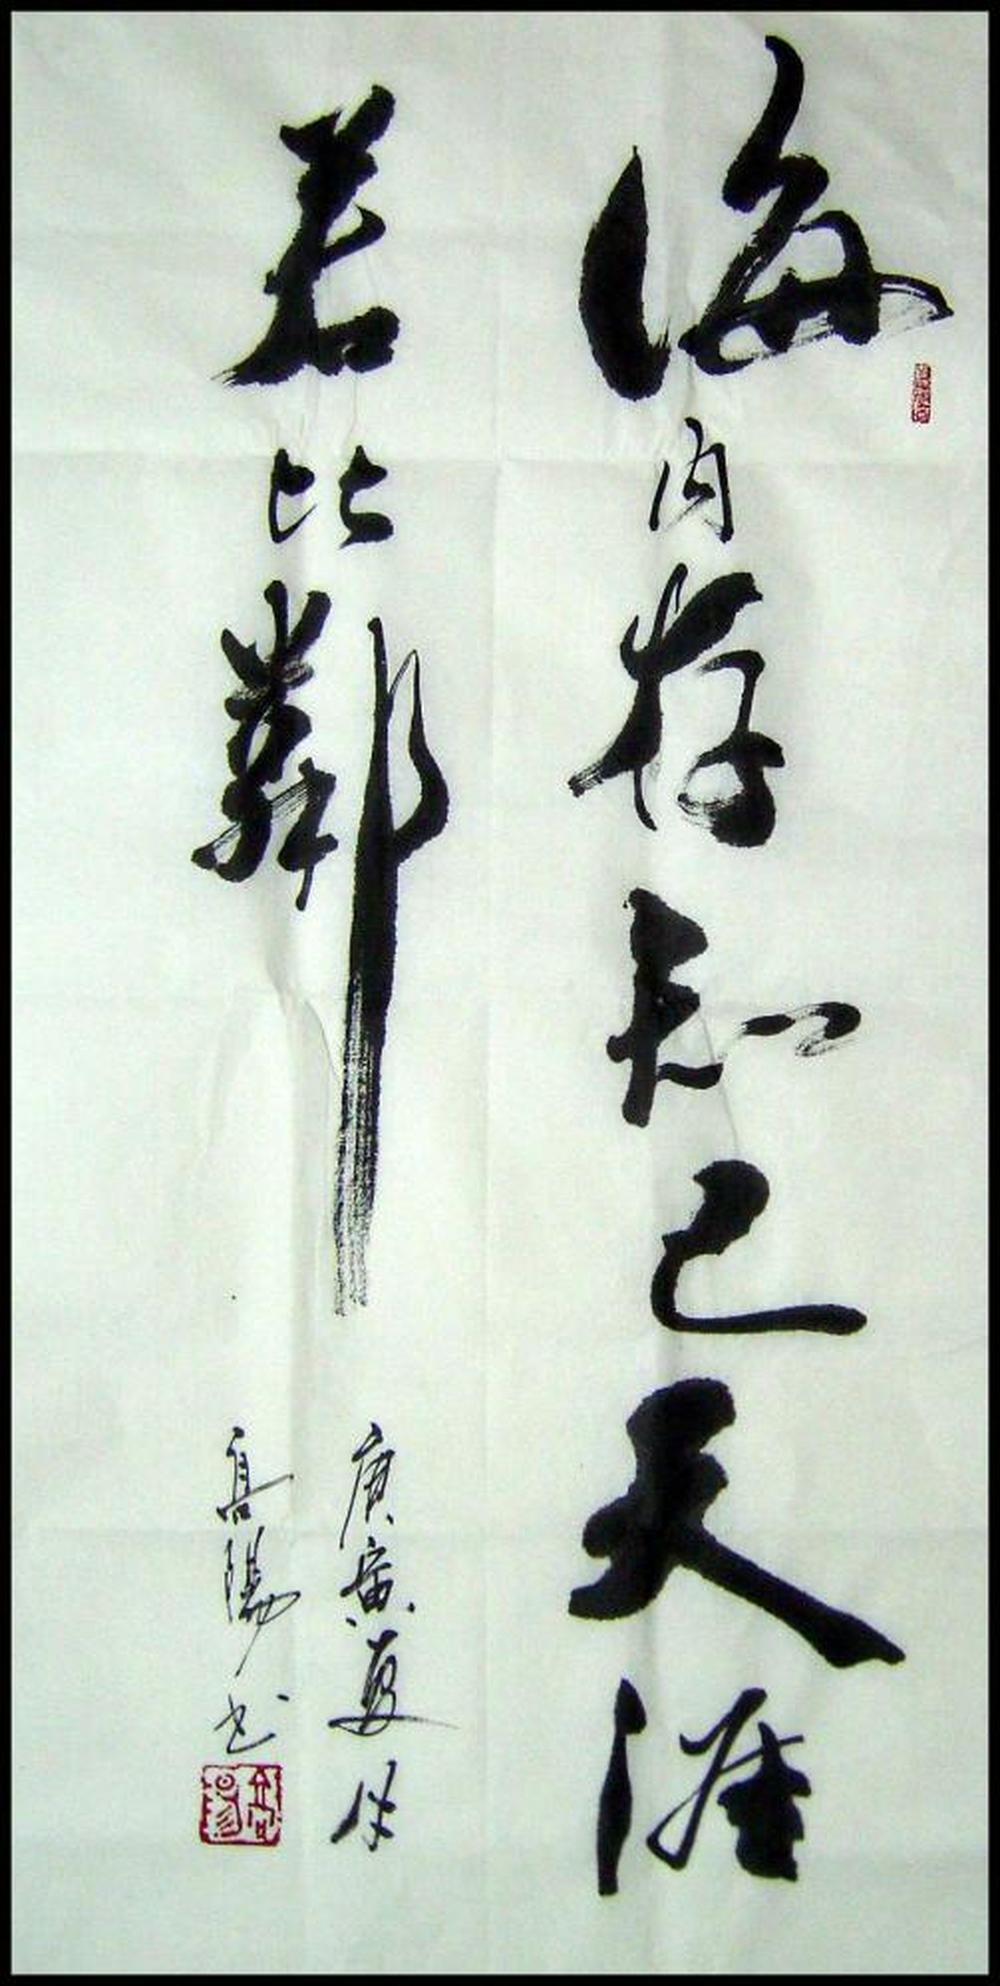 海内存知己天涯
若比鄰
庚寅夏月
高陽书